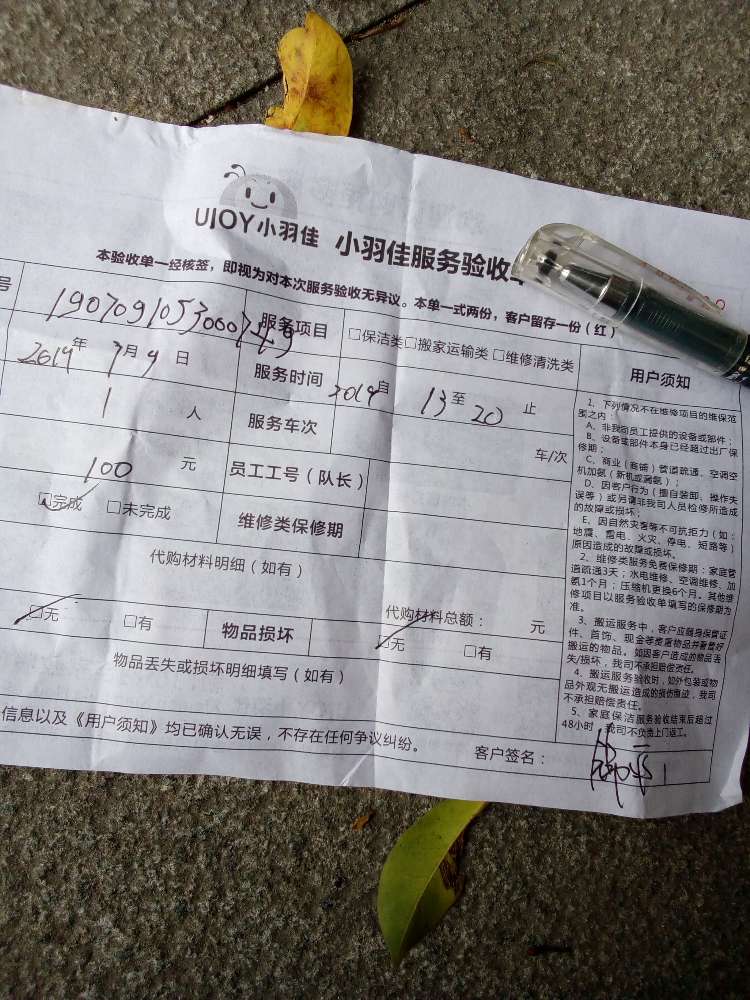 UJOY小羽佳 小羽佳服务验收单
本验收单一经核签，即视为对本次服务验收无异议。本单一式两份，客户留存一份（红）
号 服务项目 □保洁类□搬家运输类□维修清洗类
2019年7月9日 服务时间 2019自 13至20止
1人 服务车次 车/次
100元 员工工号（队长）
☑完成 □未完成 维修类保修期
代购材料明细（如有）
代购材料总额： 元
☑无 □有 物品损坏 ☑无 □有
物品丢失或损坏明细填写（如有）
信息以及《用户须知》均已确认无误，不存在任何争议纠纷。
客户签名：
用户须知
1、下列情况不在维修项目的维保范
围之内：
A、非我司员工提供的设备或部件；
B、设备或部件本身已经超过出厂保
修期；
C、商业（商铺）管道疏通、空调空
机加氨（新机或漏氨）；
D、因客户行为（擅自装卸、操作失
误等）或另请非我司人员检修所造成
的故障或损坏；
E、因自然灾害等不可抗拒力（如：
地震、雷电、火灾、停电、短路等）
原因造成的故障或损坏。
2、维修类服务免费保修期：家庭管
道疏通3天；水电维修、空调维修、加
氨1个月；压缩机更换6个月。其他维
修项目以服务验收单填写的保修期为
准。
3、搬运服务中，客户应随身保管证
件、首饰、现金等贵重物品并看管好
搬运的物品。如因客户造成的物品丢
失/损坏，我司不承担赔偿责任。
4、搬运服务验收时，如外包装或物
品外观无搬运造成的损伤痕迹，我司
不承担赔偿责任。
5、家庭保洁服务验收结束后超过
48小时，我司不负责上门返工。